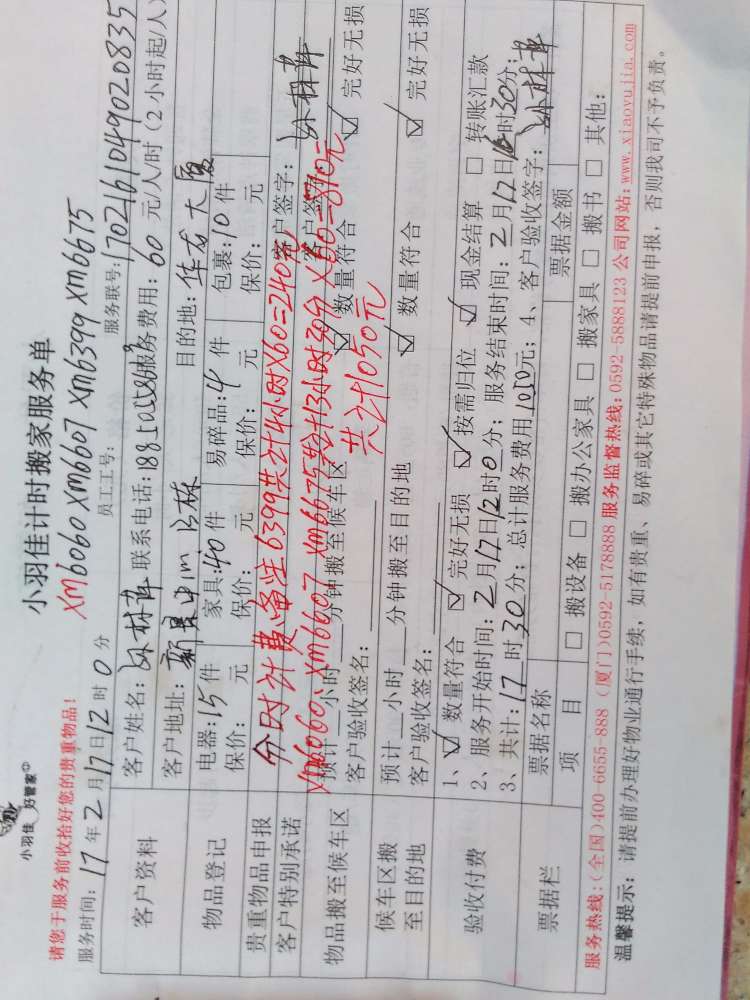 小羽佳 好管家
小羽佳计时搬家服务单
请您于服务前收拾好您的贵重物品!
xm6060 xm6607 xm6399 xm6675
服务时间: 17年2月17日12时0分 员工工号: 服务联号: 1702161049020835
客户资料
客户姓名: 林 联系电话: 服务费用: 60 元/人/时 (2小时起/人)
客户地址: 新景中 目的地: 华龙大厦
物品登记
电器: 15件 家具: 40件 易碎品: 4件 包裹: 10件
保价: 元 保价: 元 保价: 元 保价: 元
贵重物品申报
分时计费,备注6399共计4小时X60=240元
客户特别承诺
客户签字: 林
xm6060、xm6607 xm6675共计13小时30分X60=810元
共计1050元
物品搬至候车区
预计__小时__分钟搬至候车区 ☑数量符合 ☑完好无损
客户验收签名: 客户签
候车区搬至目的地
预计__小时__分钟搬至目的地 ☑数量符合 ☑完好无损
客户验收签名:
验收付费
1、☑数量符合 ☑完好无损 ☑按需归位 ☑现金结算 □转账汇款
2、服务开始时间: 2月17日12时0分; 服务结束时间: 2月17日时30分;
3、共计: 17时30分; 总计服务费用1050元; 4、客户验收签字: 林
票据栏
票据名称 票据金额
项 目 □搬设备 □搬办公家具 □搬家具 □搬书 □其他:
服务热线:(全国)400-6655-888 (厦门)0592-5178888 服务监督热线: 0592-5888123 公司网站: www.xiaoyujia.com
温馨提示: 请提前办理好物业通行手续, 如有贵重、易碎或其它特殊物品请提前申报, 否则我司不予负责。